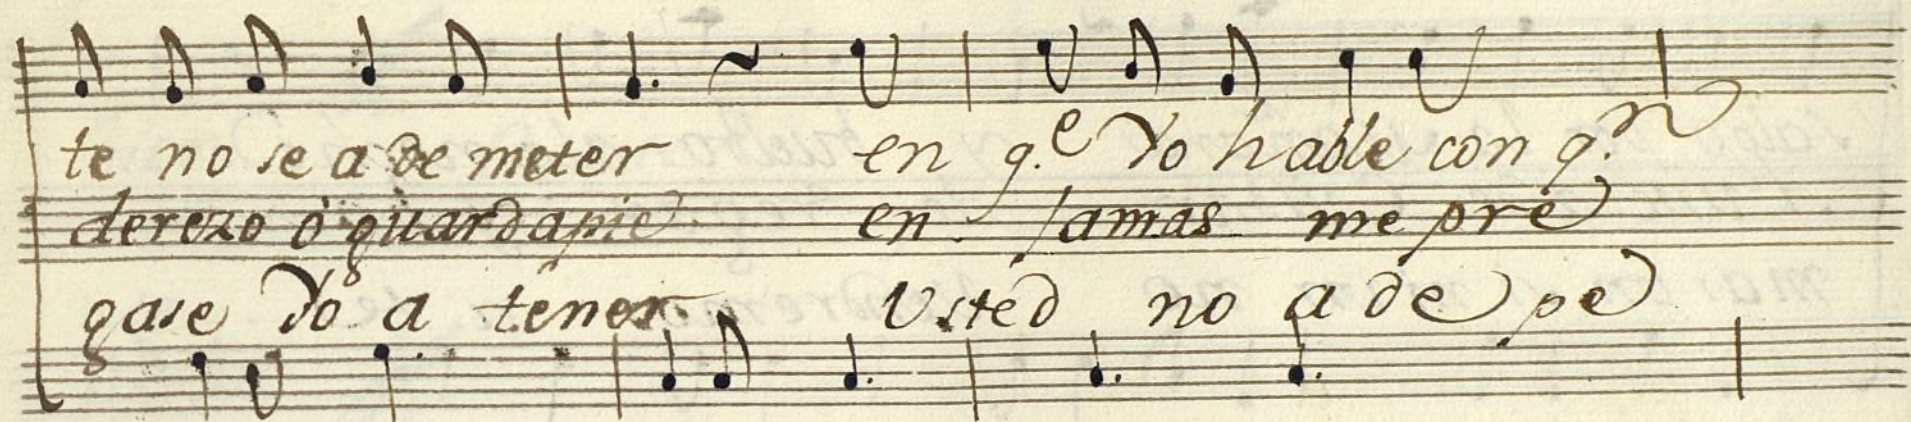 te no se a de meter en q.e Yo hable con q.n
derezo ò guardapie en Jamas me pre
gase Yo a tener Usted no a de pe